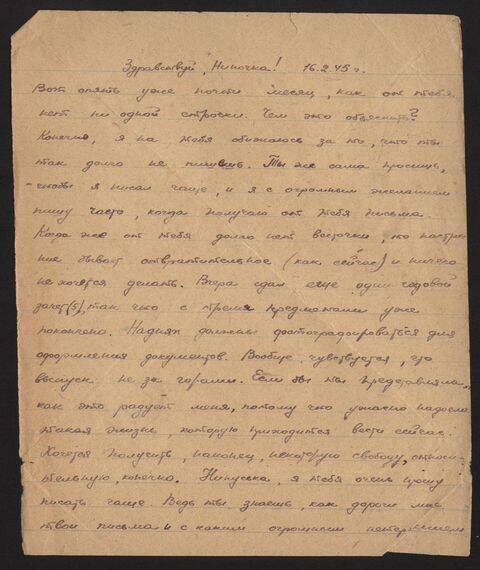 Здравствуй, Ниночка! 16.2.45 г.
Вот опять уже почти месяц, как от тебя
нет ни одной строчки. Чем это объяснить?
Конечно, я на тебя обижаюсь за то, что ты
так долго не пишешь. Ты же сама просишь,
чтобы я писал чаще, и я с огромным желанием
пишу часто, когда получаю от тебя письма.
Когда же от тебя долго нет весточки, то настрое
ние бывает отвратительное (как сейчас) и ничего
не хочется делать. Вчера сдал еще один годовой
зачет (5), так что с тремя предметами уже
покончено. Надняx должны фотографироваться для
оформления документов. Вообще чувствуется, что
выпуск не за горами. Если бы ты представляла,
как это радует меня, потому что ужасно надоела
такая жизнь, которую приходится вести сейчас.
Хочется получить, наконец, некоторую свободу, относи-
тельную, конечно. Нинуська, я тебя очень прошу
писать чаще. Ведь ты знаешь, как дороги мне
твои письма и с каким огромным нетерпением